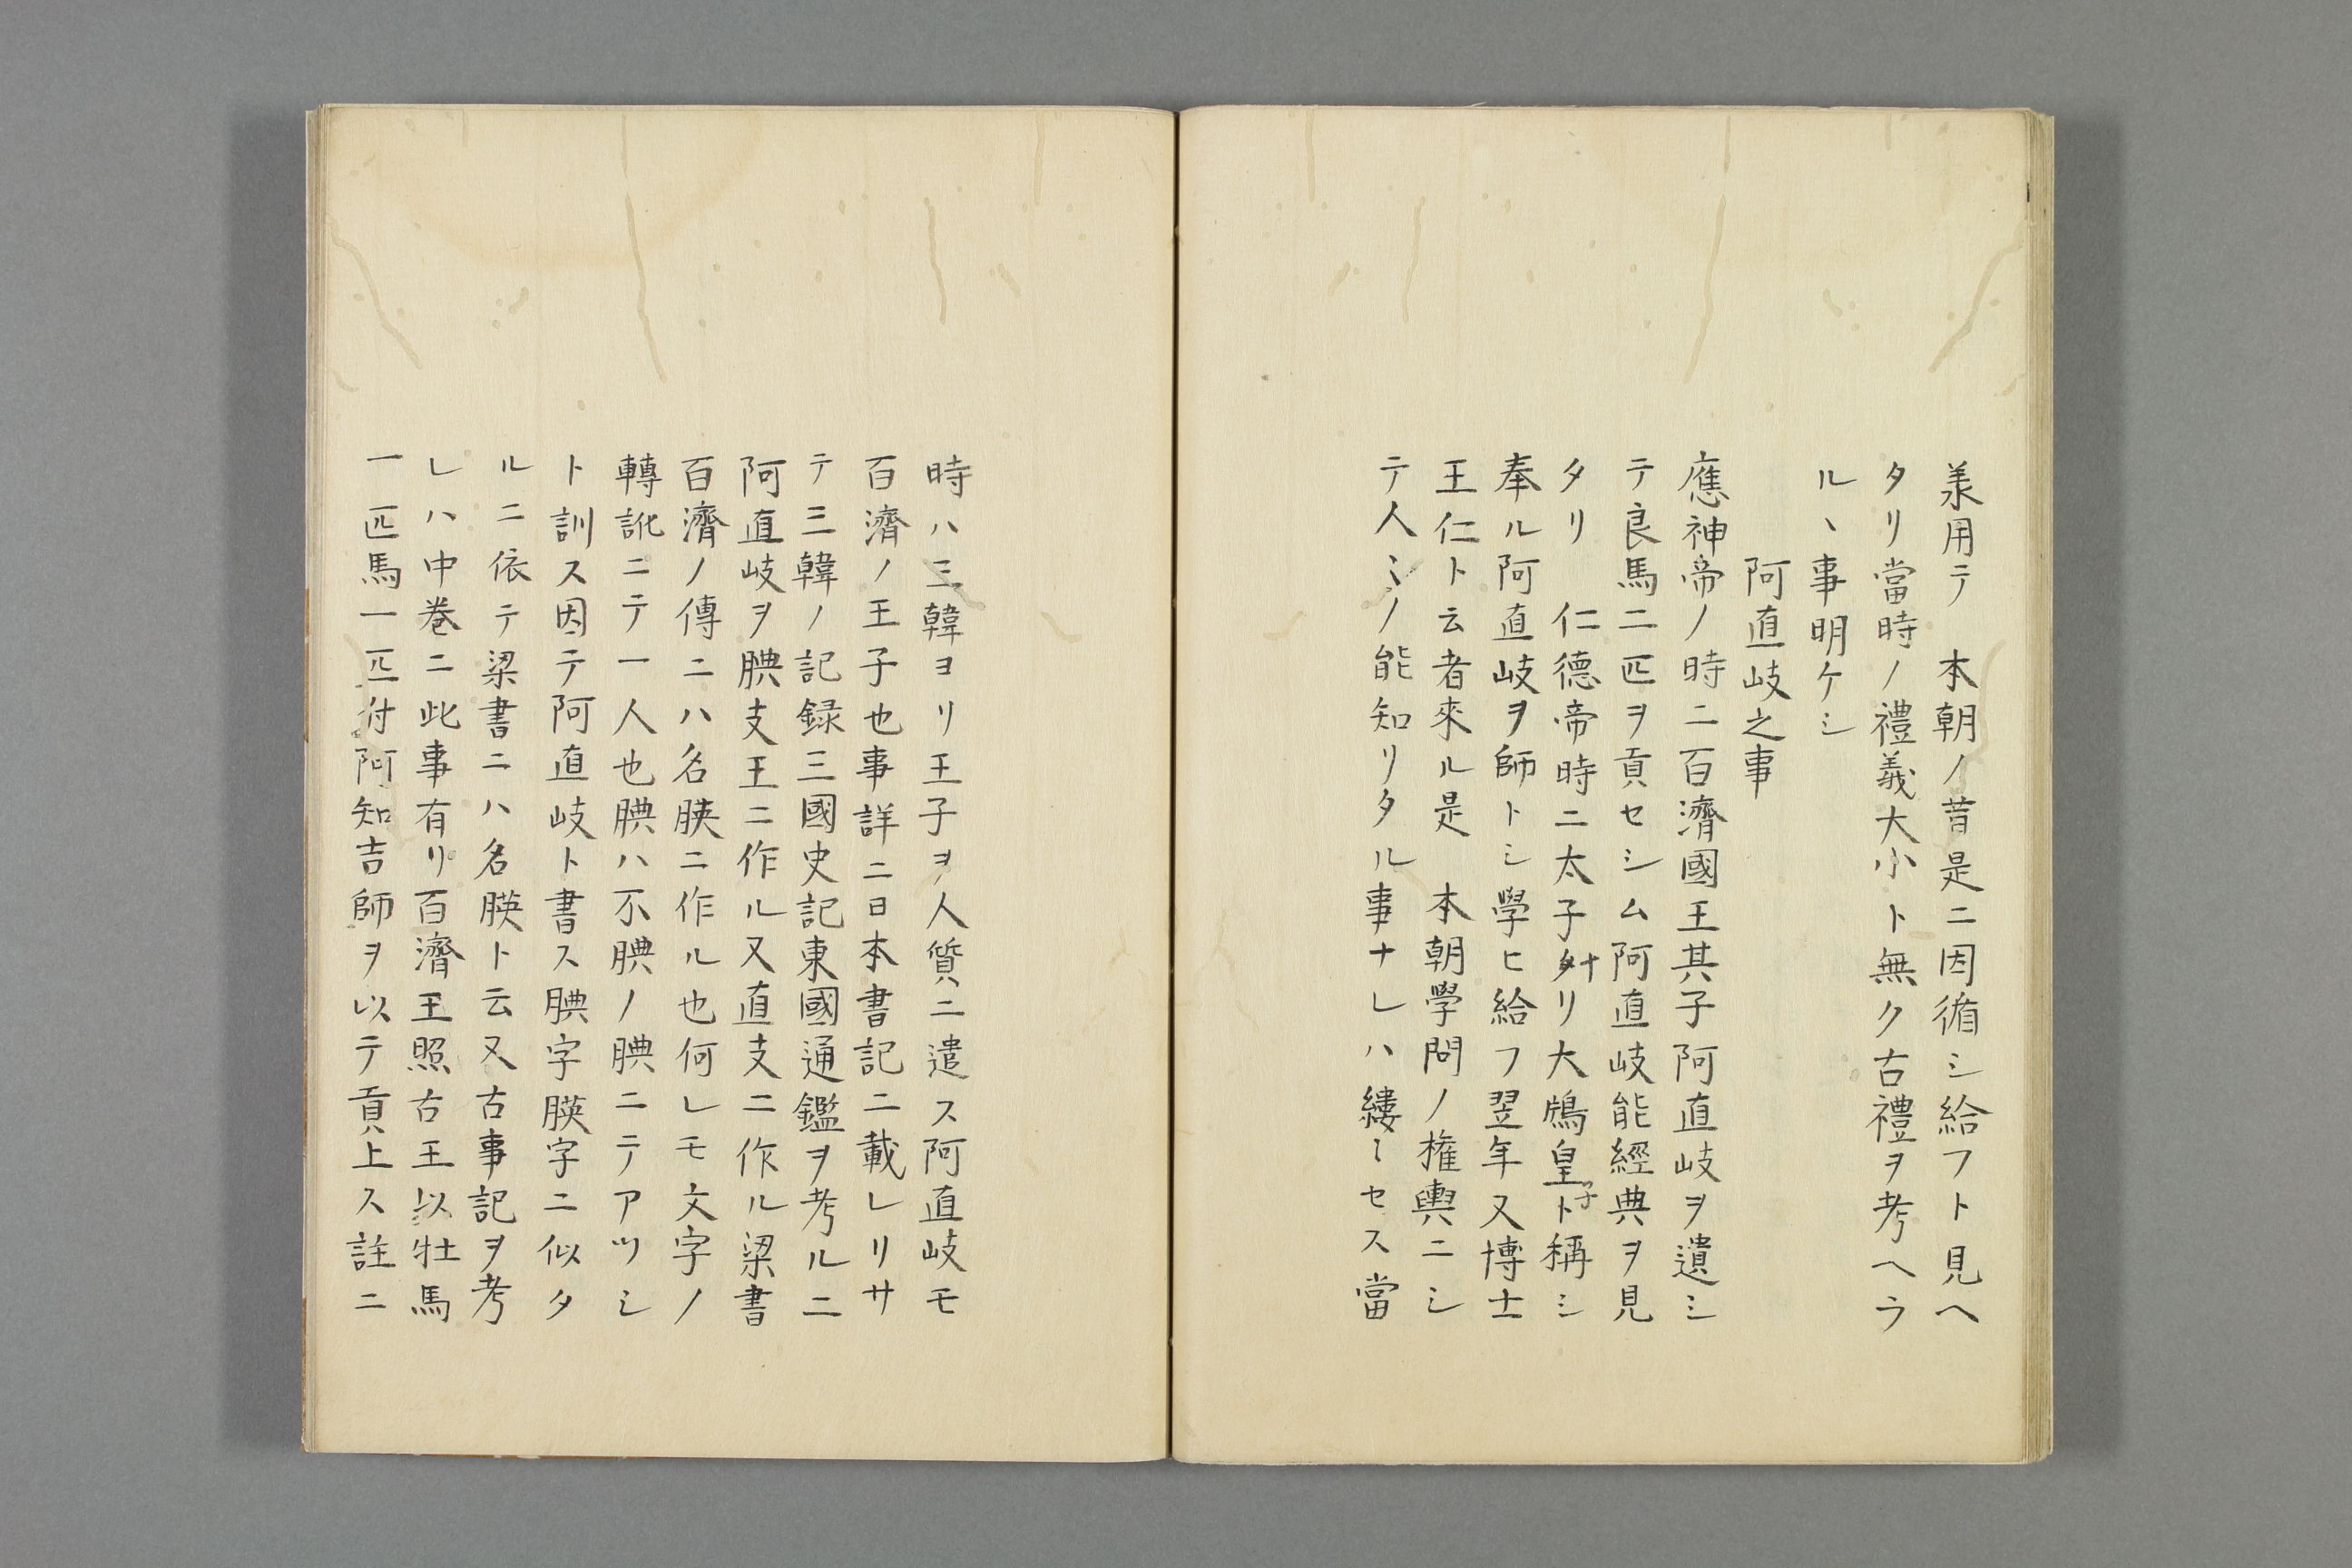 羕用テ　本朝ノ昔是ニ因循シ給フト見ヘ
タリ當時ノ禮義大小ト無ク古禮ヲ考ヘラ
ルヽ事明ケシ
阿直岐之事
應神帝ノ時ニ百濟國王其子阿直岐ヲ遺シ
テ良馬二匹ヲ貢セシム阿直岐能經典ヲ見
タリ　仁德帝時ニ太子タリ大鴟皇子ト稱シ
奉ル阿直岐ヲ師トシ學ヒ給フ翌年又博士
王仁ト云者來ル是　本朝學問ノ權輿ニシ
テ人ミノ能知リタル事ナレハ縷〻セス當
時ハ三韓ヨリ王子ヲ人質ニ遣ス阿直岐モ
百濟ノ王子也事詳ニ日本書記ニ載レリサ
テ三韓ノ記録三國史記東國通鑑ヲ考ルニ
阿直岐ヲ腆支王ニ作ル又直支ニ作ル梁書
百濟ノ傳ニハ名腆ニ作ル也何レモ文字ノ
轉訛ニテ一人也腆ハ不腆ノ腆ニテアツシ
ト訓ス因テ阿直岐ト書ス腆字䏼字ニ似タ
ルニ依テ梁書ニハ名䏼ト云又古事記ヲ考
レハ中巻ニ此事有リ百濟王照古王以牡馬
一匹馬一匹付阿知吉師ヲ以テ貢上ス註ニ